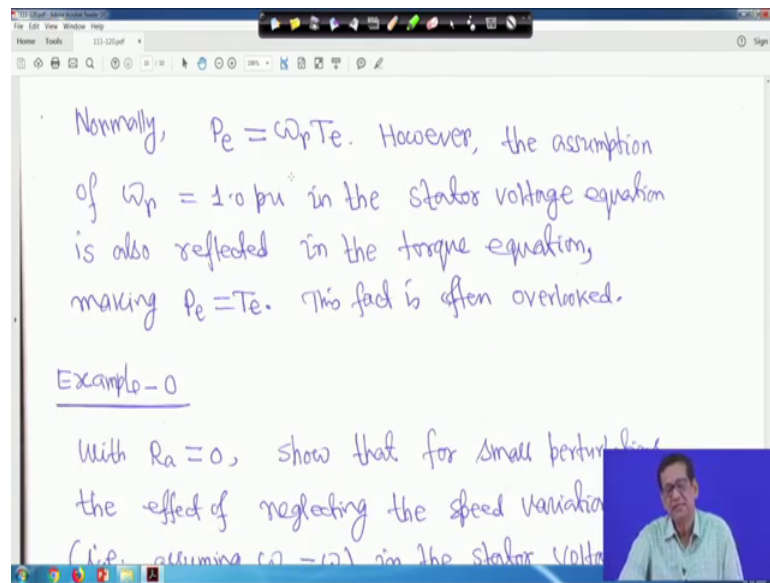 111-120.pdf - Adobe Acrobat Reader DC
File Edit View Window Help
Home Tools 111-120.pdf × Sign
Normally, Pe = ωr Te. However, the assumption
of ωr = 1.0 pu in the stator voltage equation
is also reflected in the torque equation,
making Pe = Te. This fact is often overlooked.
Example-0
With Ra = 0, show that for small
the effect of neglecting the speed
(i.e. assuming in the stator